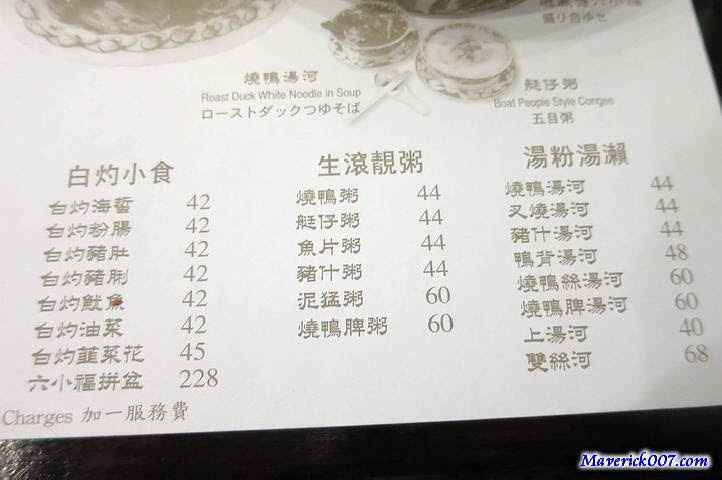 盛り合ゆせ
燒鴨湯河
Roast Duck White Noodle in Soup
ローストダックつゆそば
艇仔粥
Boat People Style Congee
五目粥
白灼小食
白灼海蜇 42
白灼粉腸 42
白灼豬肚 42
白灼豬脷 42
白灼魷魚 42
白灼油菜 42
白灼韮菜花 45
六小福拼盆 228
生滾靚粥
燒鴨粥 44
艇仔粥 44
魚片粥 44
豬什粥 44
泥猛粥 60
燒鴨脾粥 60
湯粉湯瀨
燒鴨湯河 44
叉燒湯河 44
豬什湯河 44
鴨背湯河 48
燒鴨絲湯河 60
燒鴨脾湯河 60
上湯河 40
雙絲河 68
Charges 加一服務費
Maverick007.com